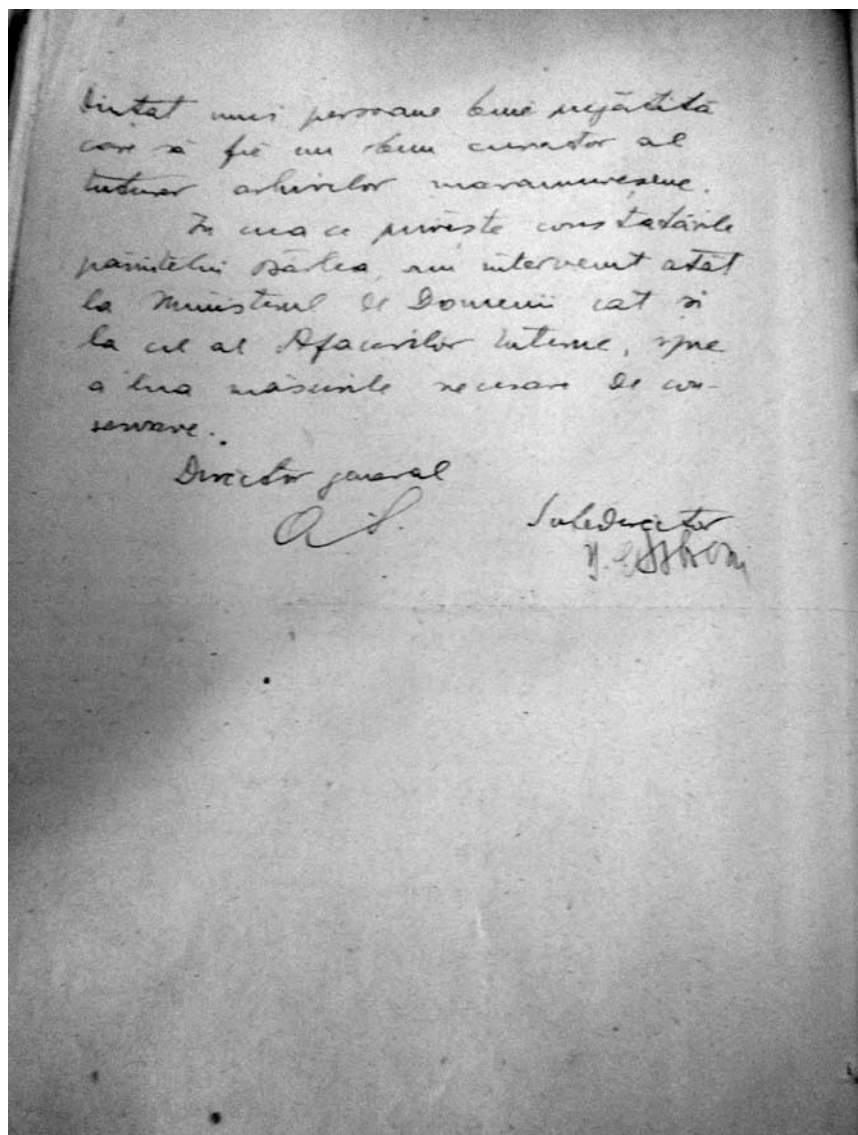 dintat unei persoane bine pregătită
care să fie un bun curator al
tuturor arhivelor maramureșene.
In ceea ce privește constatările
părintelui Bârlea, am intervenit atât
la Ministerul de Domenii cat și
la cel al Afacerilor Interne, spre
a lua măsurile necesare de con-
servare.
Director general
A S.
Subdirector